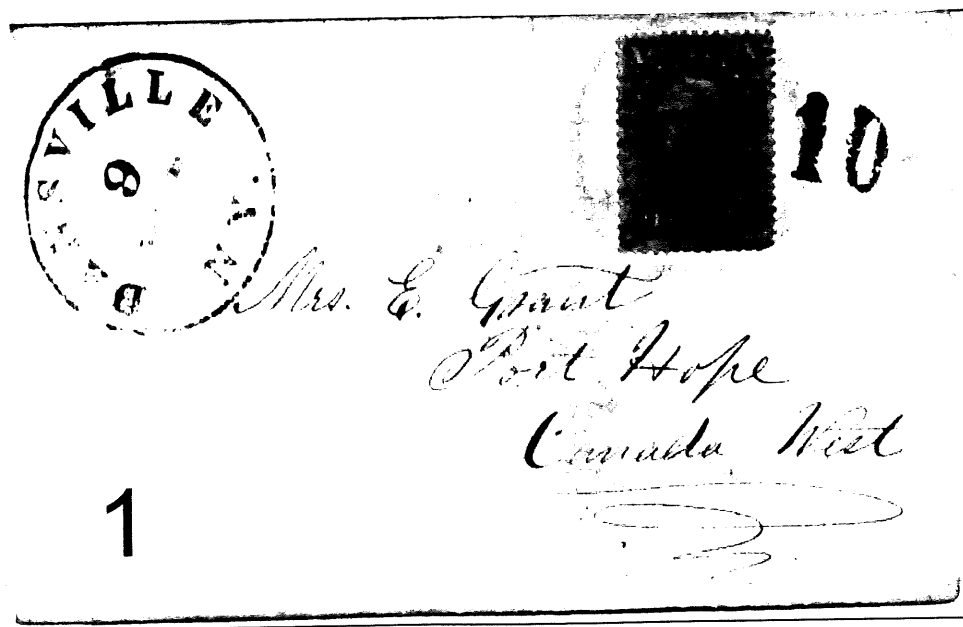 DANSVILLE N.Y.
10
Mrs. E. Grant
Port Hope
Canada West
1